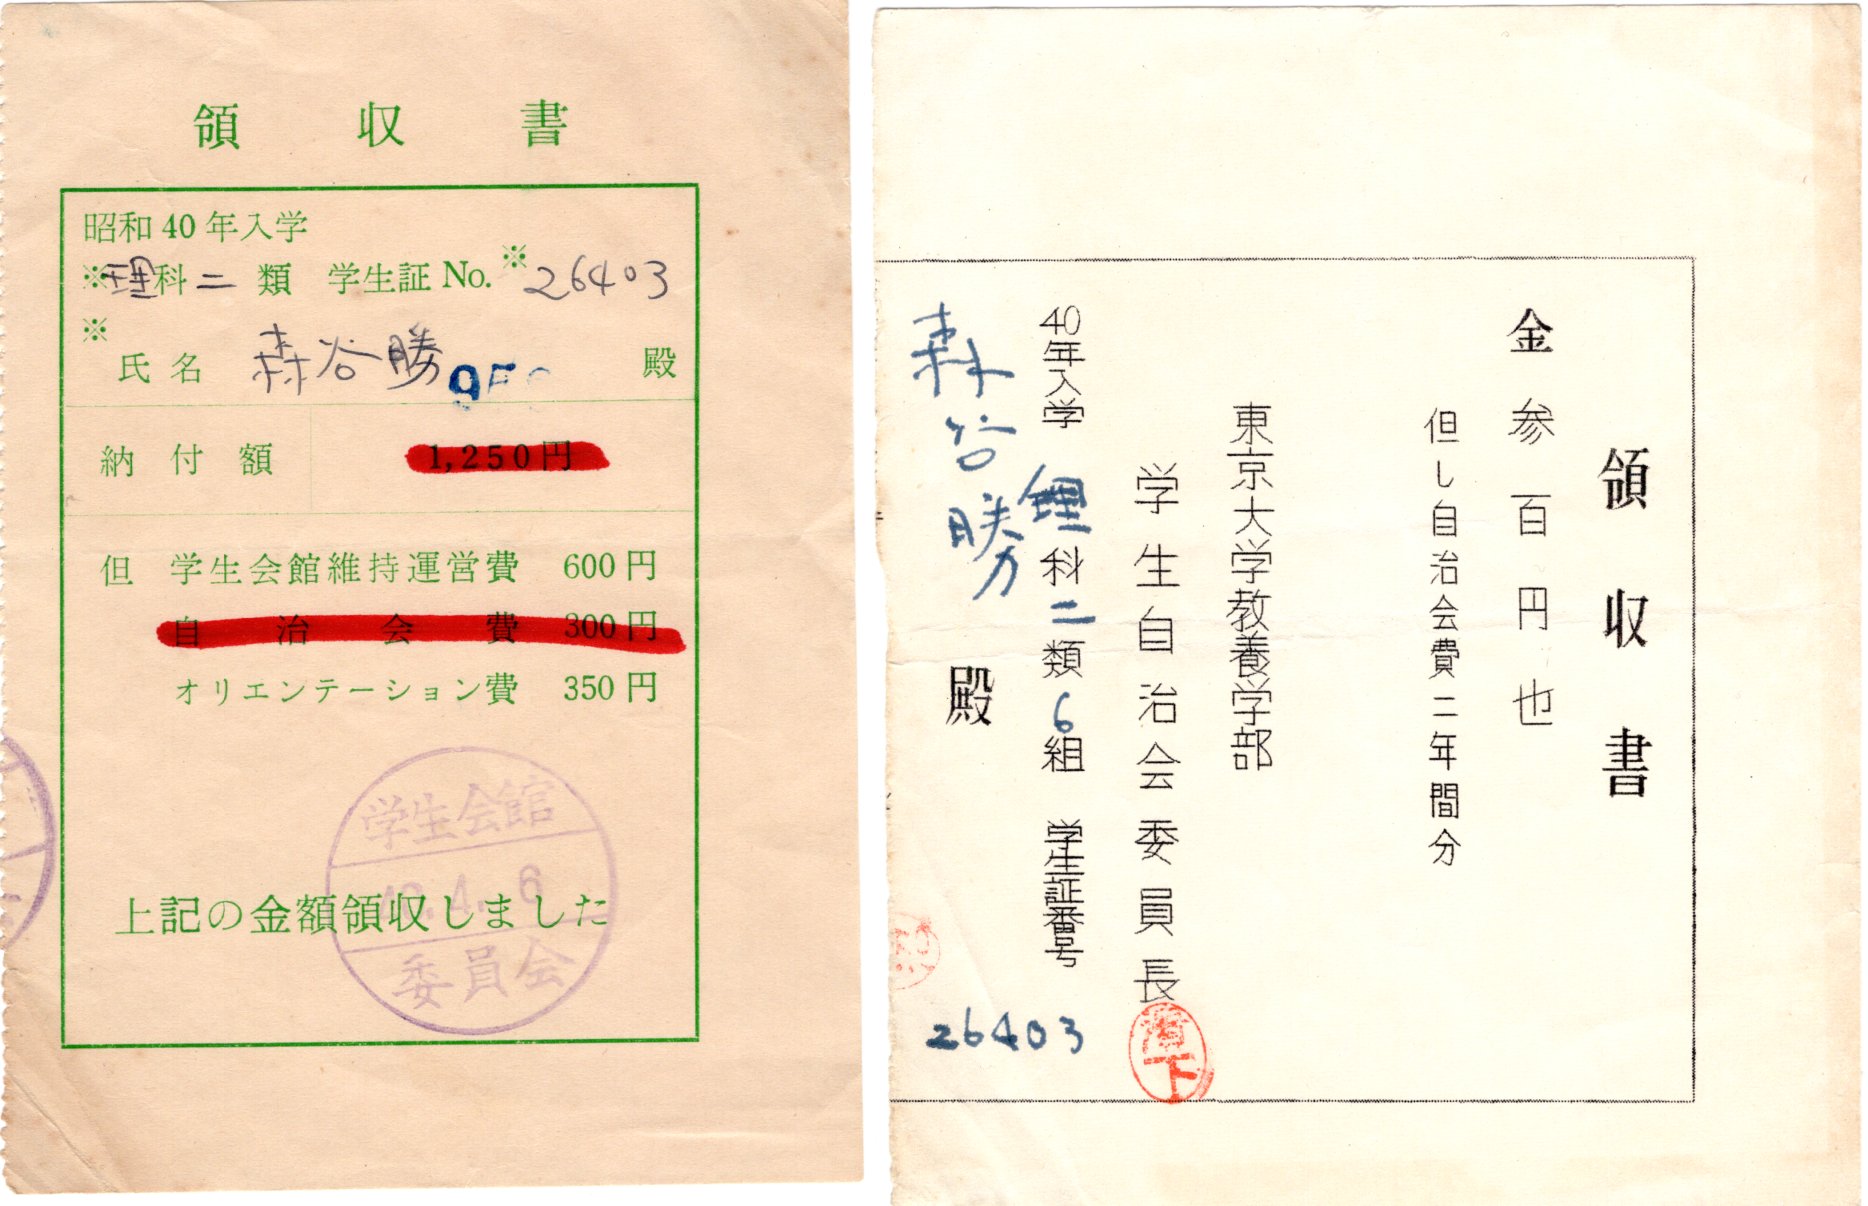 領収書
昭和40年入学
※理科二類 学生証No.※26403
※
氏名 森谷勝 殿
950
納付額 1,250円
但 学生会館維持運営費 600円
自治会費 300円
オリエンテーション費 350円
上記の金額領収しました
学生会館
40.4.6
委員会
領収書
金参百円也
但し自治会費二年間分
東京大学教養学部
学生自治会委員長
40年入学 理科二類6組 学生証番号
26403
森谷勝 殿